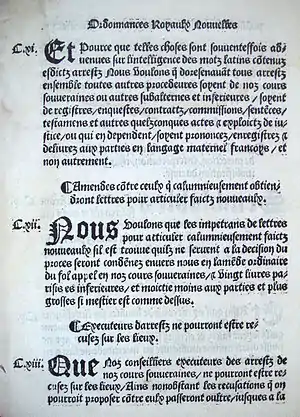 Ordonnances Royaulx Nouvelles
C.xi. Et Pource que telles choses sont souuentessois ad-
uenues sur lintelligence des motz latins cōtenuz
esdictz arrestz Nous voulons q̄ doresenauāt tous arrestz
ensemble toutes autres procedeures soyent de noz cours
souueraines ou autres subalternes et inferieures / soyent
de registres / enquestes / contractz / commissions / sentēces /
testamens et autres quelzconques actes ⁊ exploictz de iu-
stice / ou qui en dependent / soyent prononcez / enregistrez ⁊
deliurez aux parties en langage maternel francoys / et
non autrement.
¶ Amendes cōtre ceulx q̄ calumnieusement obtien-
dront lettres pour articuler faictz nouueaulx.
C.xii. Nous Voulons que les impetrans de lettres
pour articuler calumnieusement faictz
nouueaulx sil est trouue quilz ne seruent a la decision du
proces seront condēnez enuers nous en lamēde ordinaire
du fol appel en noz cours souueraines / ⁊ vingt liures pa-
risis es inferieures / et moictie moins aux parties et plus
grosses si mestier est comme dessus.
¶ Executeurs darrestz ne pourront estre re-
cusez sur les lieux.
C.xiii. Que Noz conseilliers executeurs des arrestz de
noz cours souueraines / ne pourront estre re-
cusez sur les lieux / Ains nonobstant les recusations q̄ on
pourroit proposer cōtre eulx passeront oultre / iusques a la